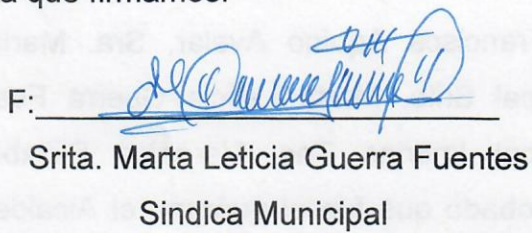 que firmamos.
F:
Srita. Marta Leticia Guerra Fuentes
Sindica Municipal